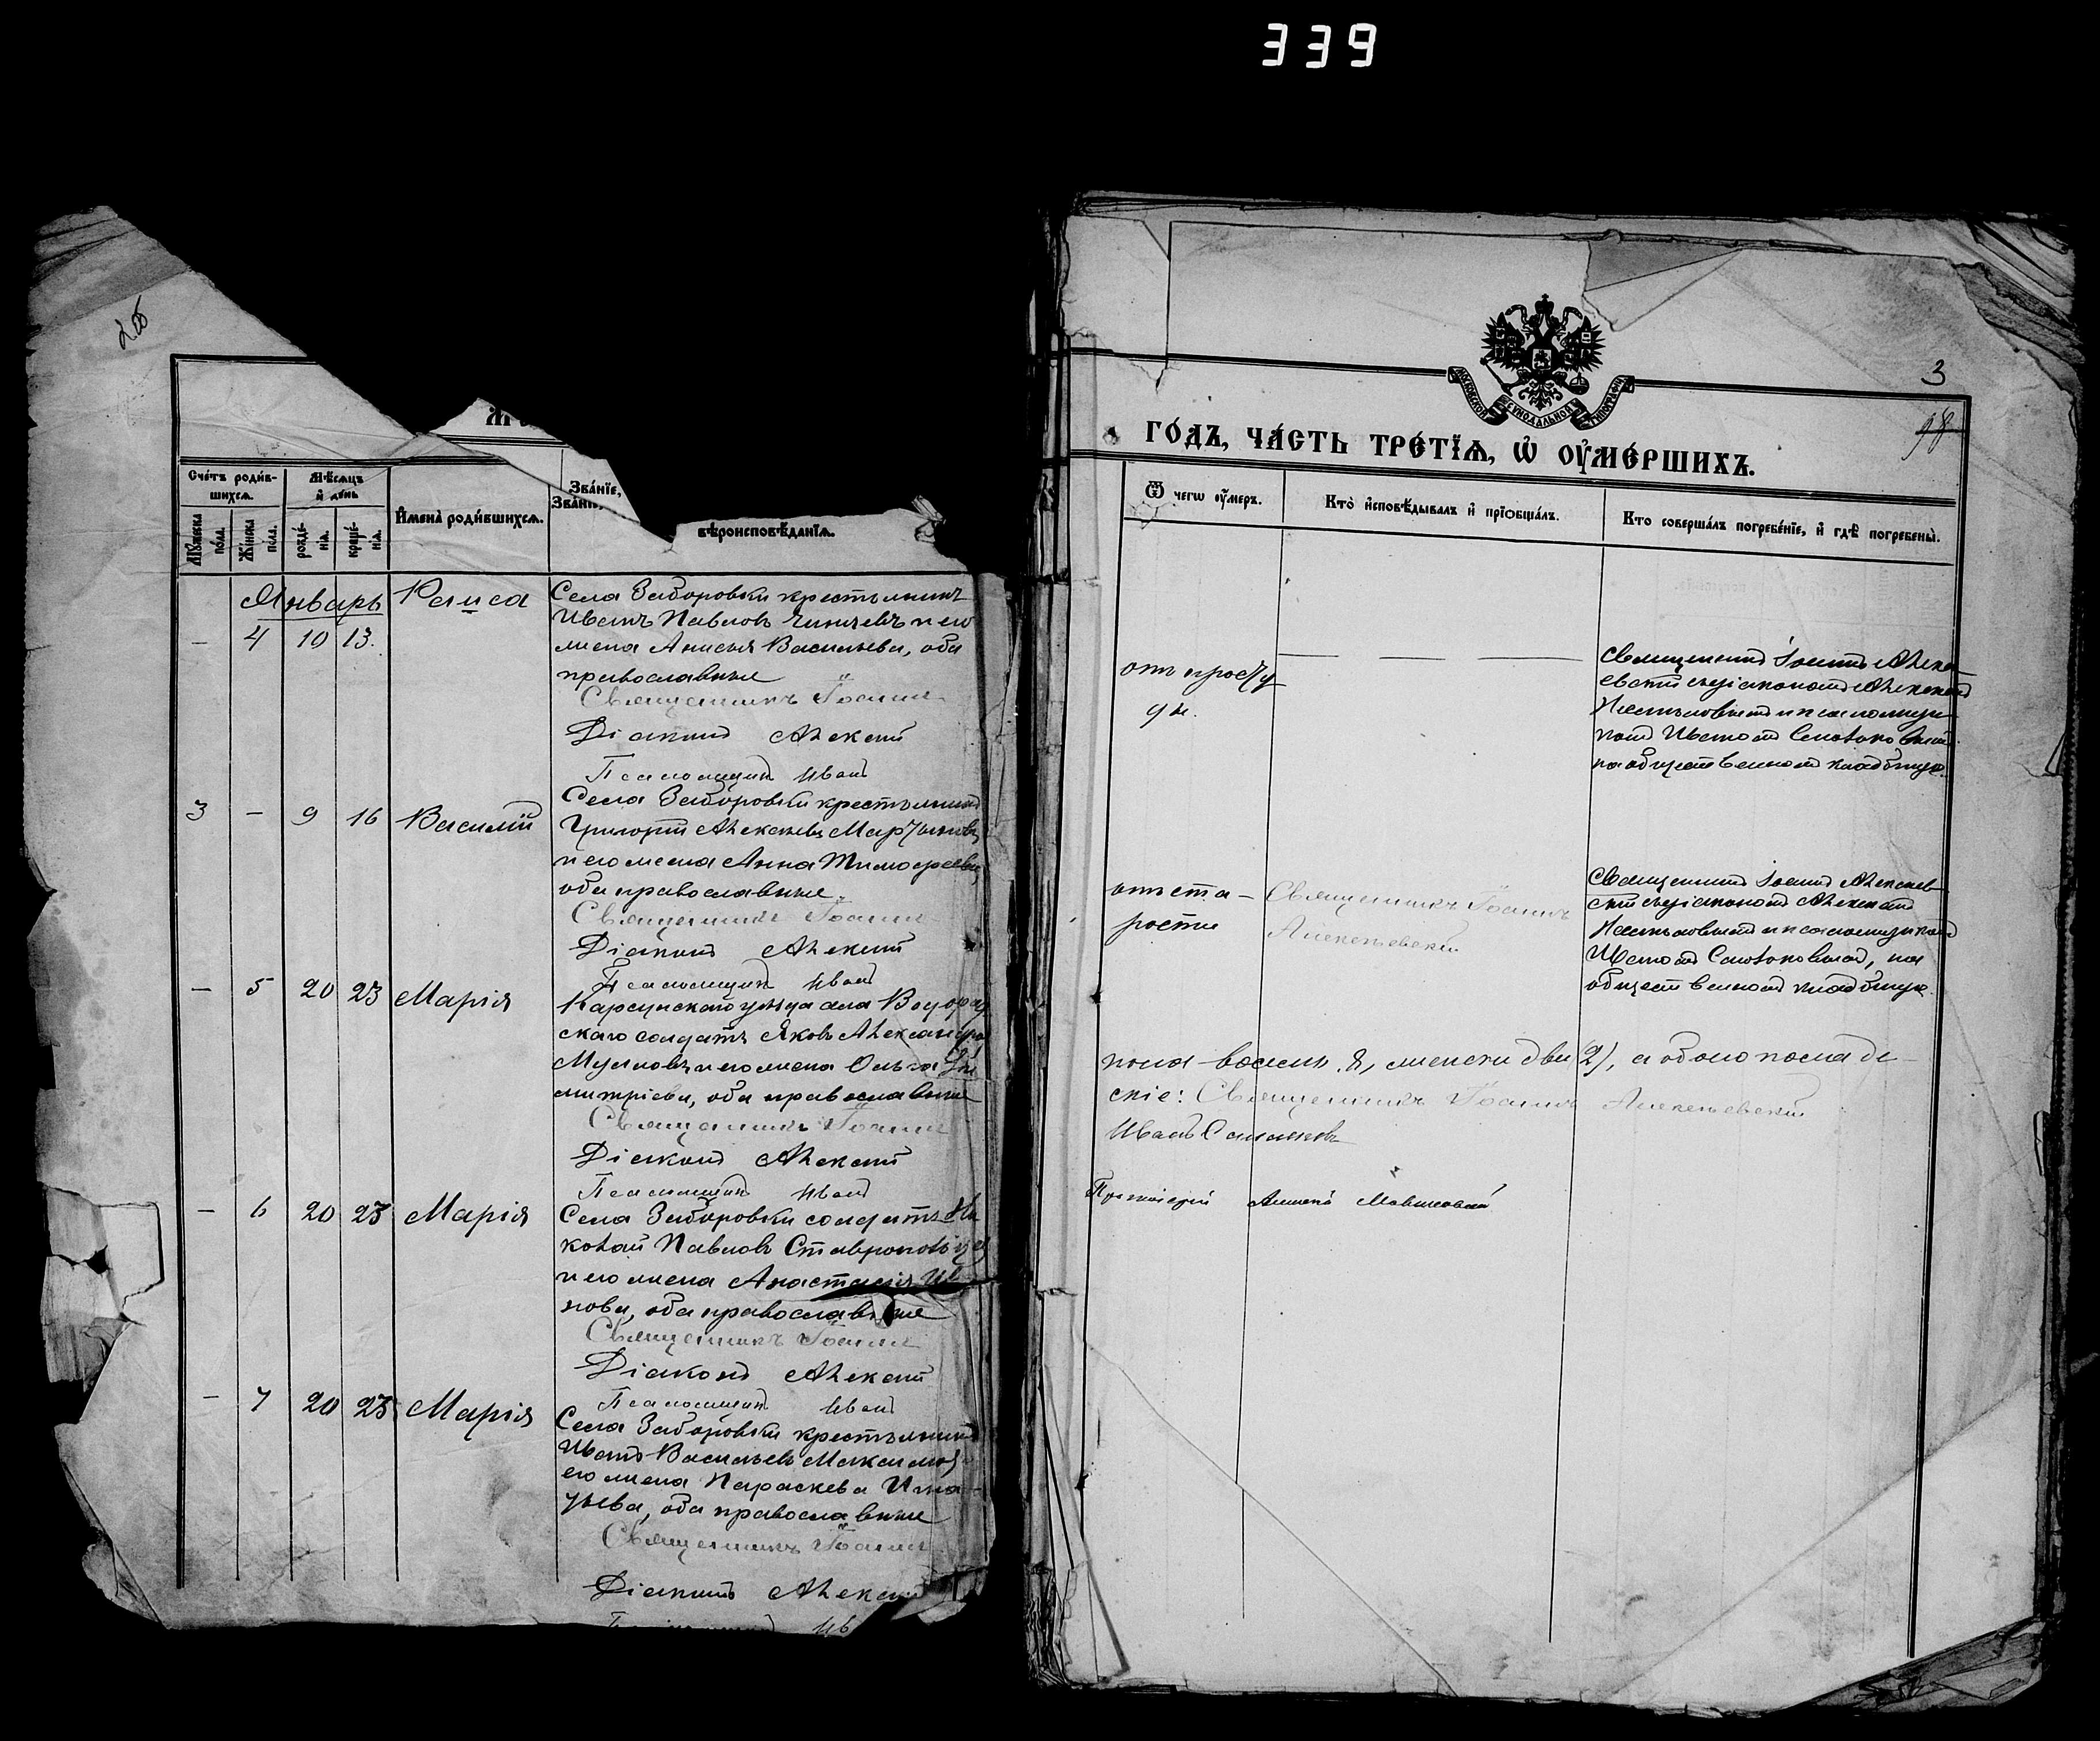 339
М
Счетъ роди́в-
шихсѧ.
Мѣсѧцъ
и҆ де́нь
Мꙋ́жска
по́ла.
Же́нска
по́ла.
рожде́-
нїѧ.
креще́-
нїѧ.
И҆мена̀ роди́вшихсѧ.
Зва́нїе,
Зва́нїе,
вѣроисповѣ́данїѧ.
Январь
— 4 10 13.
Раиса
Села Заборовки крестьянинъ
Иванъ Павловъ и его
жена Анисья Васильева, оба
православные
Священникъ Іоаннъ
Діаконъ Алексій
Псаломщикъ Иванъ
3 — 9 16 Василій
Села Заборовки крестьянинъ
Григорій Алексѣевъ
и его жена Анна Тимофеева,
оба православные.
Священникъ Іоаннъ
Діаконъ Алексій
Псаломщикъ Иванъ
— 5 20 23 Марія
Карсунскаго уѣзда села
скаго солдатъ Яковъ Александровъ
и его жена Ольга Ди
митріева, оба православные
Священникъ Іоаннъ
Діаконъ Алексій
Псаломщикъ Иванъ
— 6 20 23 Марія
Села Заборовки солдатъ Ни
колай Павловъ
и его жена Анастасія Ива
нова, оба православные
Священникъ Іоаннъ
Діаконъ Алексій
Псаломщикъ Иванъ
— 7 20 23 Марія
Села Заборовки крестьянинъ
Иванъ Васильевъ Максимов
его жена Параскева Игна-
тьева, оба православные
Священникъ Іоаннъ
Діаконъ Алексій
Ив
3
98
МОСКОВСКОЙ СѴНОДАЛЬНОЙ ТИПОГРАФІИ
ГО́ДЪ, ЧА́СТЬ ТРЕ́ТЇѦ, Ѡ҆ ОУ҆МЕ́РШИХЪ.
Ѿ чегѡ̀ оу҆́меръ.
Кто̀ и҆сповѣ́дывалъ и҆ прїѻбща́лъ.
Кто соверша́лъ погребе́нїе, и҆ гдѣ̀ погребены̀.
отъ просту
ды.
— — —
Священникъ Іоаннъ Алексѣ
евскій съ діакономъ Алексѣемъ
и псаломщи
комъ Иваномъ
на общественномъ кладбищѣ.
отъ ста-
рости
Священникъ Іоаннъ
Алексѣевскій
Священникъ Іоаннъ Алексѣев
скій съ діакономъ Алексѣемъ
и псаломщикомъ
Иваномъ, на
общественномъ кладбищѣ.
пола восемь 8, женска два (2), а обоего пола де-
скіе: Священникъ Іоаннъ Алексѣевскій
Иванъ
Протоіерей